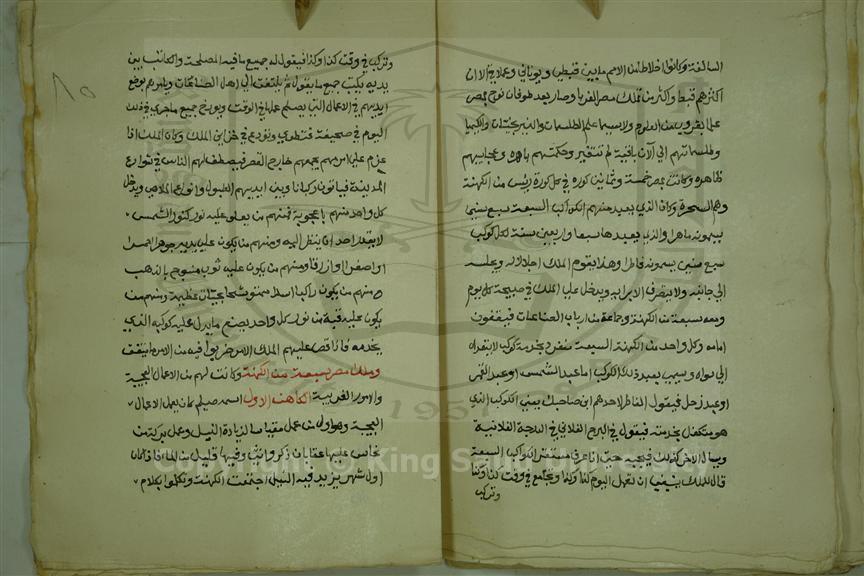 السالفة وكانوا اخلاطا من الامم ما بين قبطي ويوناني وعمليقي الا ان
اكثرهم قبط واكثر من تملك مصر الغربا وصار بعد طوفان نوح بمصر
علما بضروب من العلوم ولا سيما علم الطلسمات والنيرنجيات والكيميا
وطلسماتهم الي الآن باقية لم تتغير وحكمتهم باهره وعجايبهم
ظاهره وكانت مصر خمسة وثمانين كورة في كل كورة رئيس من الكهنة
وهم السحرة وكان الذي يعبد منهم الكواكب السبعة سبع سنين
يسمونه ماهرا والذي يعبدها سبعا واربعين سنة لكل كوكب
سبع سنين يسمونه قاطرا وهذا يقوم الملك اجلالا له ويجلسه
الي جانبه ولا يتصرف الا برايه ويدخل علي الملك في صبيحة كل يوم
ومعه سبعة من الكهنة وجماعة من ارباب الصناعات فيقفون
امامه وكل واحد من الكهنة السبعة منفرد بخدمة كوكب لا يتعداه
الي سواه ويسمي بعبد ذلك الكوكب اما عبد الشمس او عبد القمر
او عبد زحل فيقول القاطر لاحدهم اين صاحبك يعني الكوكب الذي
هو متكفل بخدمته فيقول في البرج الفلاني في الدرجة الفلانية
ويسال الاخر كذلك فيجيبه حتي اذا عرف مستقر الكواكب السبعة
قال للملك ينبغي ان تعمل اليوم كذا وكذا وتجامع في وقت كذا وكذا
وتركب
٨٥
وتركب في وقت كذا وكذا فيقول له جميع ما فيه المصلحة والكاتب بين
يديه يكتب جميع ما يقول ثم يلتفت الي اهل الصناعات ويامرهم بوضع
ايديهم في الاعمال التي يصلح عملها في الوقت ويورخ جميع ما جري في ذلك
اليوم في صحيفة فتطوي وتودع في خزاين الملك وكان الملك اذا
عزم علي امر مهم يجمعهم خارج القصر فيصطف لهم الناس في شوارع
المدينة فياتون ركبانا وبين ايديهم الطبول وانواع الملاهي ويدخل
كل واحد منهم باعجوبة فمنهم من يعلو عليه نور كنور الشمس
لا يقدر احد ان ينظر اليه ومنهم من يكون علي يديه جوهر اخضر
او اصفر او ازرق ومنهم من يكون عليه ثوب منسوج بالذهب
ومنهم من يكون راكبا اسدا متوشحا بحيات عظيمة ومنهم من
يكون عليه قبة من نور كل واحد يصنع ما يدل عليه كوكبه الذي
يخدمه فاذا قص عليهم الملك الامر ضربوا فيه من الامر ما يتفق
وملك مصر سبعة من الكهنة وكانت لهم من الاعمال العجيبة
والامور الغريبة الكاهن الاول اسمه صيلم كان يعمل الاعمال
العجيبة وهو اول من عمل مقياسا لزيادة النيل وعمل بركة من
نحاس عليها عقابان ذكر وانثي وفيها قليل من الماء فاذا كان
اول شهر يزيد فيه النيل اجتمعت الكهنة وتكلموا بكلام
Copyright © King Saud University
1957